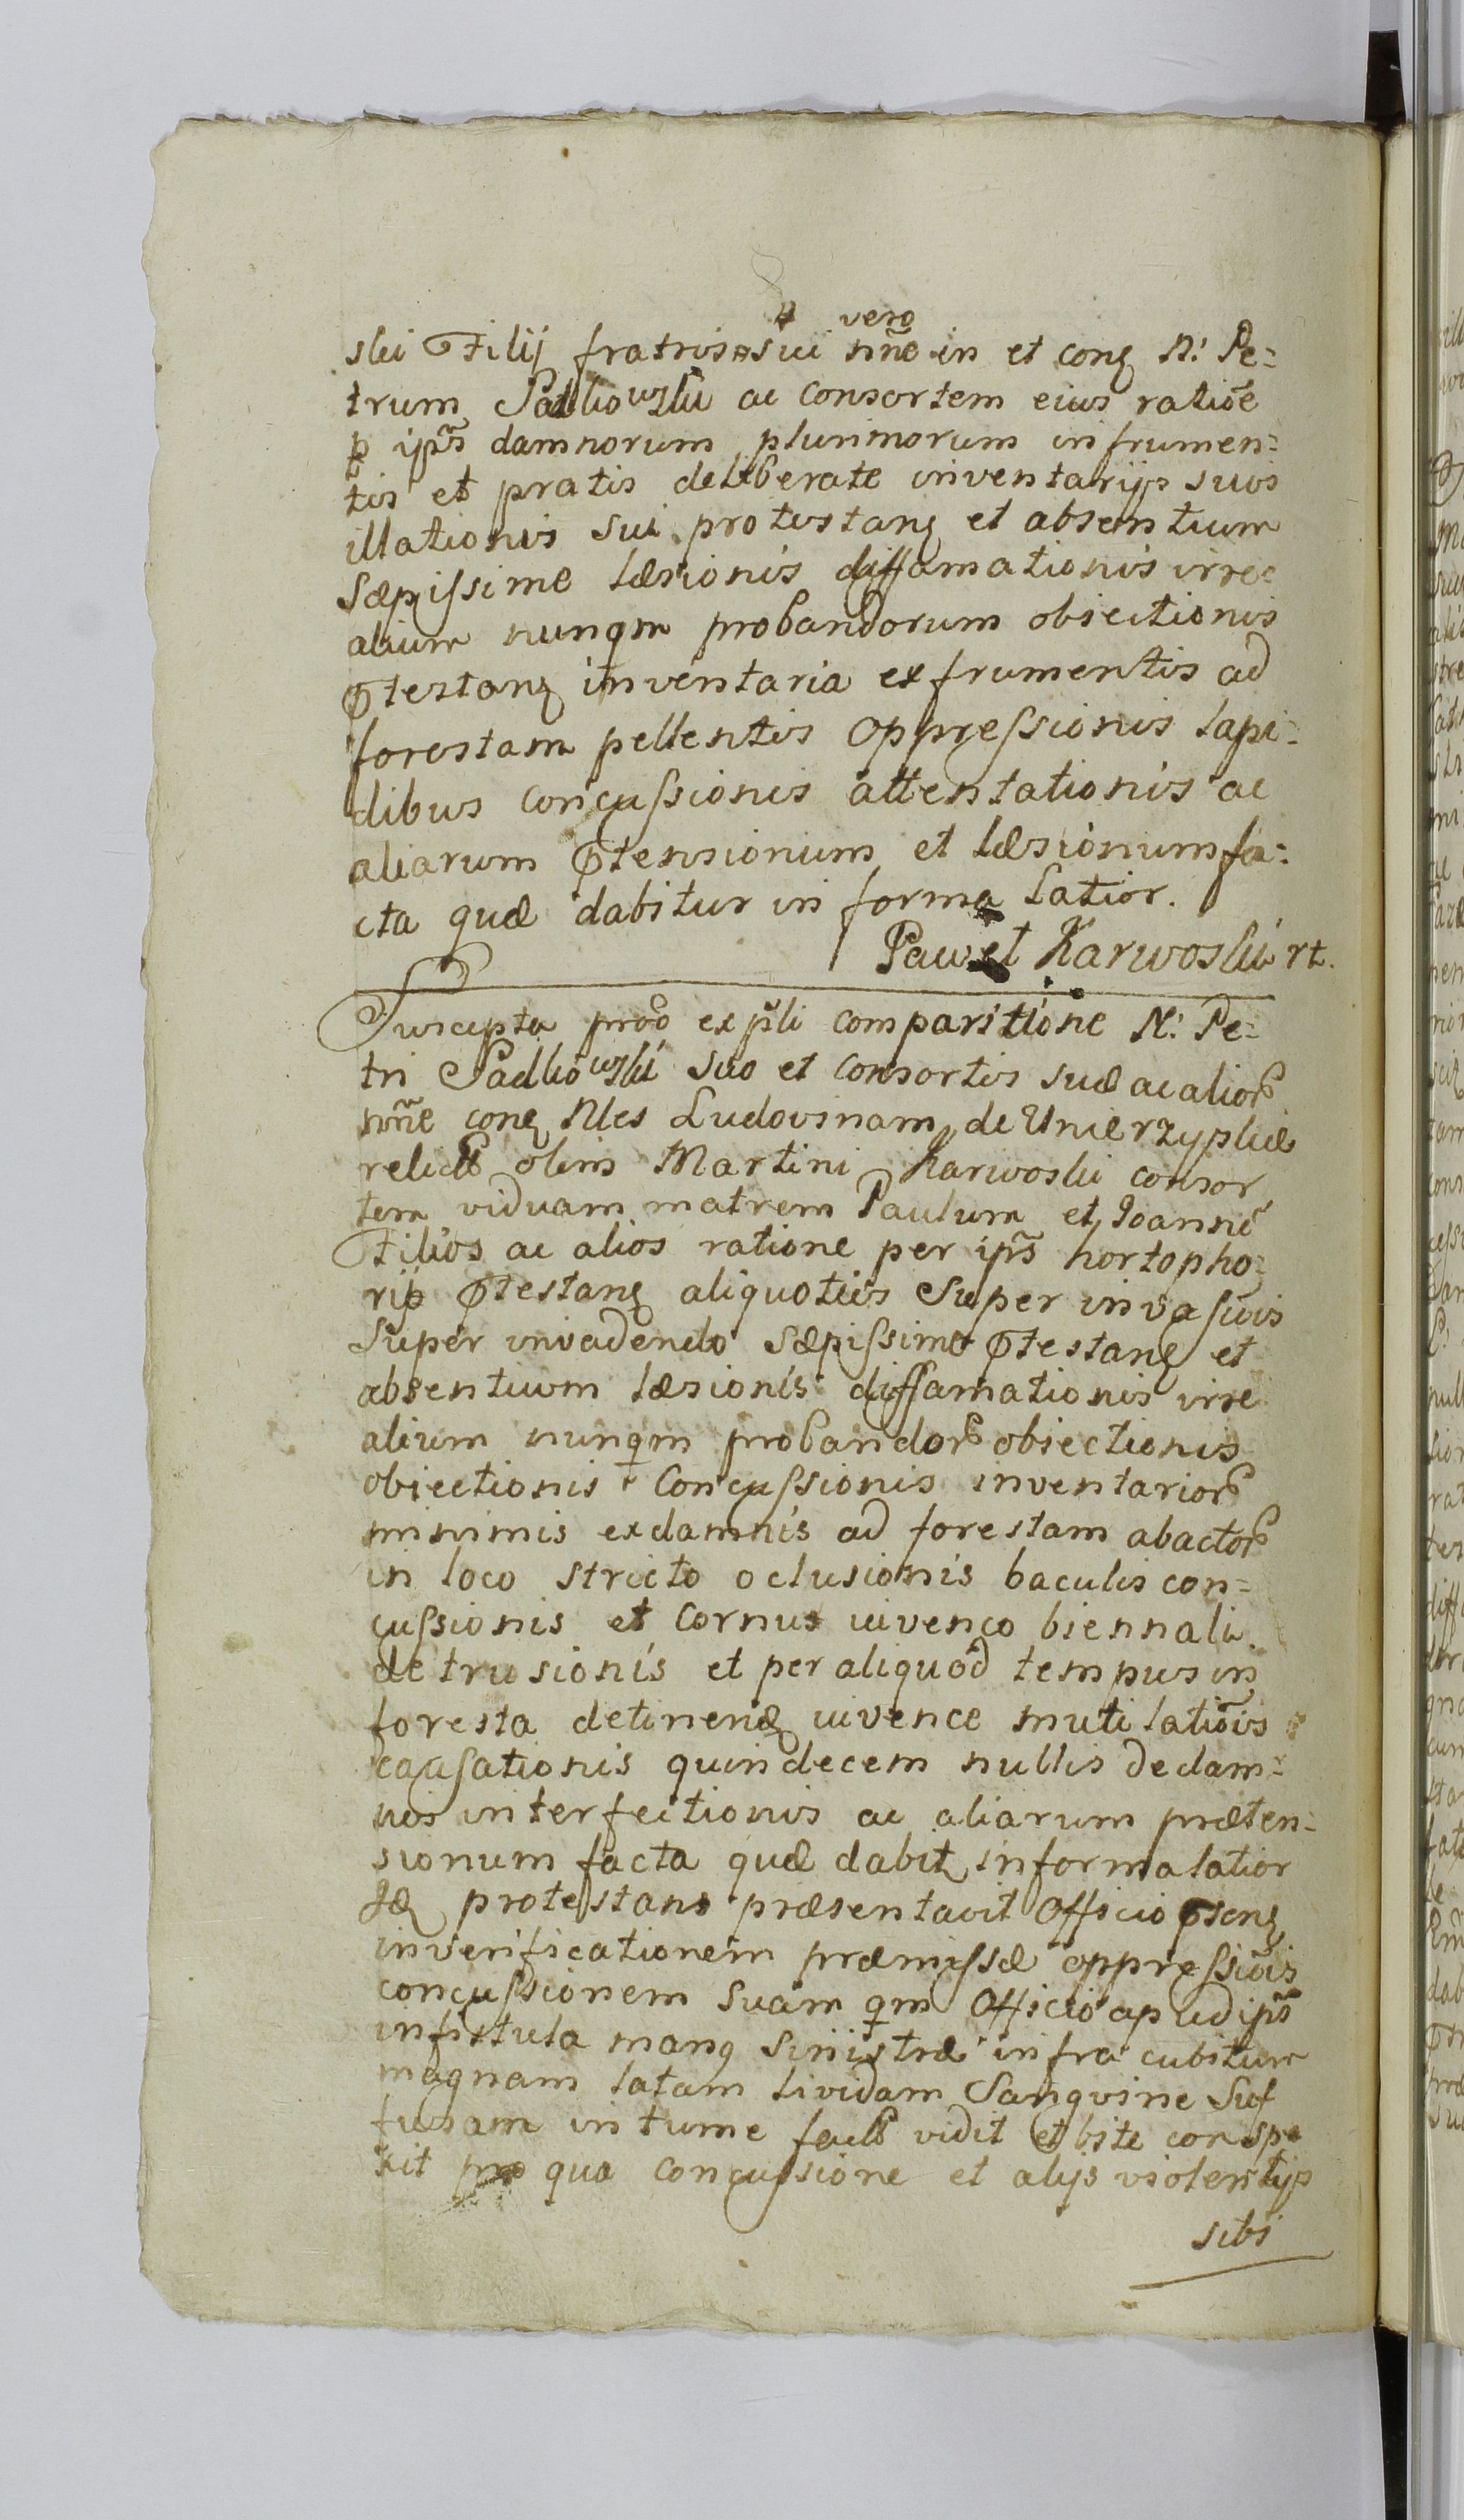 vero
ski Filij fratris sui nñe in et conq N: Pe=
trum Padkowski ac consortem eius ratiõe
p ipõs damnorum plurimorum in frumen=
tis et pratis deliberate inventarijs suis
illationis sui protestanq et absentium
sæpissime læsionis diffamationis irre
alium nunqm probandorum obiectionis
Ptestanq inventaria ex frumentis ad
forestam pellentis oppressionis lapi=
dibus concussionis attentationis ac
aliarum Ptensionum et læsionum fa=
cta quæ dabitur in forma latior.
Paweł Karwoski rt.
Suscepta proõ expli comparitione N: Pe=
tri Padkowski suo et consortis suæ ac alior
nñe conq Nles Ludovinam de Unierzyplæ
relict olim Martini Karwoski consor
tem viduam matrem Paulum et Joannẽ
Filios ac alios ratione per ipõs hortopho=
rijs Ptestanq aliquoties super invasuis
super invadendo sæpissime Ptestanq et
absentium læsionis diffamationis irre
alium nunqm probandor obiectionis
obiectionis concussionis inventarior
minimis ex damnis ad forestam abactor
in loco stricto oclusionis baculis con=
cussionis et cornus iuvenco biennali
detrusionis et per aliquod tempus in
foresta detinenq iuvence mutilatiõis
causationis quindecem nullis de dam=
nis interfectionis ac aliarum præten=
sionum facta quæ dabit in forma latior
Idq protestans præsentavit Officio Psenq
in verificationem præmissæ oppressiõis
concussionem suam qm Officiõ apud ipõ
in fistula manq sinistræ infra cubitum
magnam latam lividam sanqvine suf
fusam in tume fact vidit et bite conspe
xit pro qua concussione et alijs violentijs
sibi